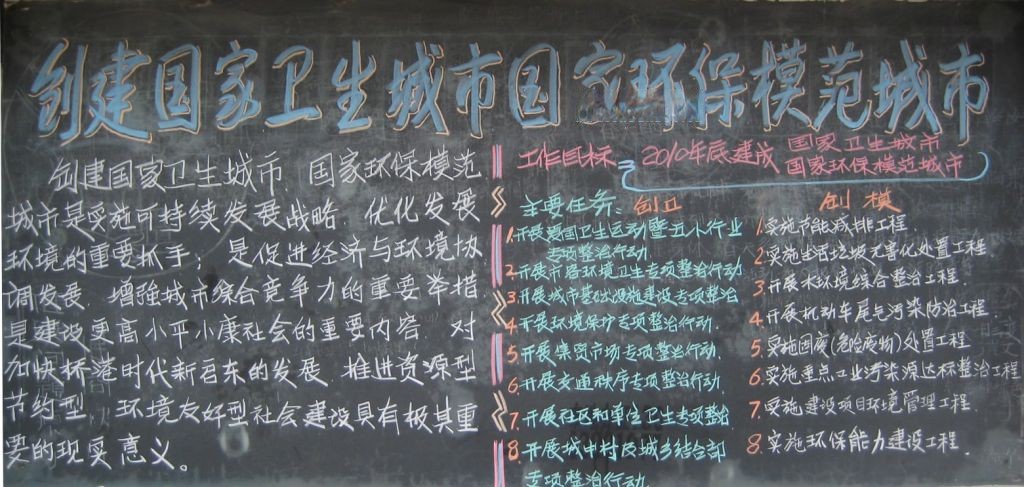 创建国家卫生城市国家环保模范城市
创建国家卫生城市 国家环保模范
城市是实施可持续发展战略 优化发展
环境的重要抓手；是促进经济与环境协
调发展 增强城市综合竞争力的重要举措
是建设更高小平小康社会的重要内容 对
加快桥港时代新启东的发展 推进资源型
节约型 环境友好型社会建设具有极其重
要的现实意义。
工作目标 2010年底建成 国家卫生城市
国家环保模范城市
主要任务：创卫
1.开展爱国卫生运动暨五小行业
专项整治行动
2.开展市容环境卫生专项整治行动
3.开展城市基础设施建设专项整治
4.开展环境保护专项整治行动.
5.开展集贸市场专项整治行动.
6.开展交通秩序专项整治行动
7.开展社区和单位卫生专项整治
8.开展城中村及城乡结合部
专项整治行动.
创模
1.实施节能减排工程.
2.实施生活垃圾无害化处置工程.
3.开展水环境综合整治工程.
4.开展机动车尾气污染防治工程.
5.实施固废(危险废物)处置工程.
6.实施重点工业污染源达标整治工程
7.实施建设项目环境管理工程.
8.实施环保能力建设工程.